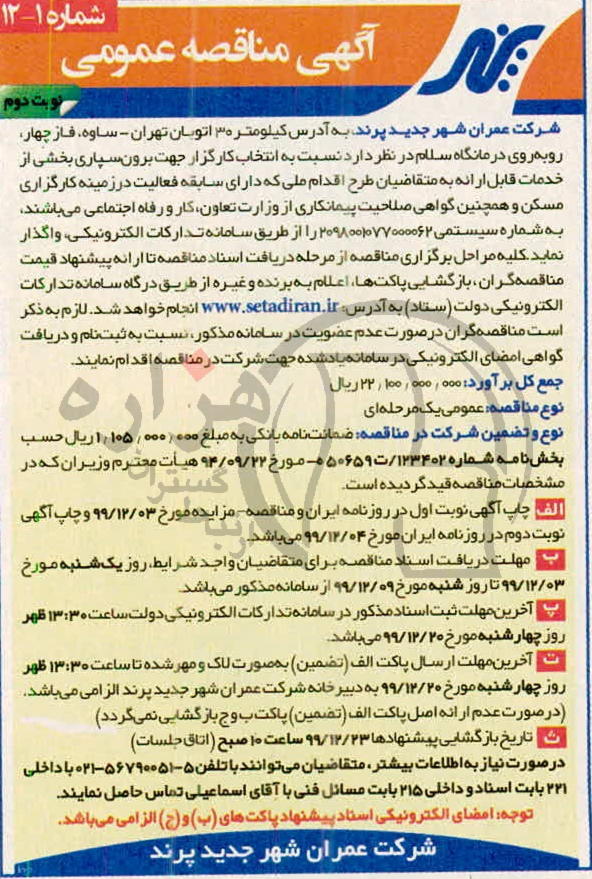 شماره ۱-۱۲
پرند
آگهی مناقصه عمومی
نوبت دوم
شرکت عمران شهر جدید پرند، به آدرس کیلومتر ۳۰ اتوبان تهران - ساوه، فاز چهار،
روبه‌روی درمانگاه سلام در نظر دارد نسبت به انتخاب کارگزار جهت برون‌سپاری بخشی از
خدمات قابل ارائه به متقاضیان طرح اقدام ملی که دارای سابقه فعالیت در زمینه کارگزاری
مسکن و همچنین گواهی صلاحیت پیمانکاری از وزارت تعاون، کار و رفاه اجتماعی می‌باشند،
به شماره سیستمی ۲۰۹۸۰۰۱۰۷۷۰۰۰۰۶۲ را از طریق سامانه تدارکات الکترونیکی، واگذار
نماید. کلیه مراحل برگزاری مناقصه از مرحله دریافت اسناد مناقصه تا ارائه پیشنهاد قیمت
مناقصه‌گران، بازگشایی پاکت‌ها، اعلام به برنده و غیره از طریق درگاه سامانه تدارکات
الکترونیکی دولت (ستاد) به آدرس: www.setadiran.ir انجام خواهد شد. لازم به ذکر
است مناقصه‌گران در صورت عدم عضویت در سامانه مذکور، نسبت به ثبت‌نام و دریافت
گواهی امضای الکترونیکی در سامانه یادشده جهت شرکت در مناقصه اقدام نمایند.
جمع کل برآورد: ۲۲,۱۰۰,۰۰۰,۰۰۰ ریال
نوع مناقصه: عمومی یک مرحله‌ای
نوع و تضمین شرکت در مناقصه: ضمانت‌نامه بانکی به مبلغ ۱,۱۰۵,۰۰۰,۰۰۰ ریال حسب
بخش‌نامه شماره ۱۲۳۴۰۲/ت ۵۰۶۵۹ هـ مورخ ۹۴/۰۹/۲۲ هیأت محترم وزیران که در
مشخصات مناقصه قید گردیده است.
الف چاپ آگهی نوبت اول در روزنامه ایران و مناقصه - مزایده مورخ ۹۹/۱۲/۰۳ و چاپ آگهی
نوبت دوم در روزنامه ایران مورخ ۹۹/۱۲/۰۴ می‌باشد.
ب مهلت دریافت اسناد مناقصه برای متقاضیان واجد شرایط، روز یک‌شنبه مورخ
۹۹/۱۲/۰۳ تا روز شنبه مورخ ۹۹/۱۲/۰۹ از سامانه مذکور می‌باشد.
پ آخرین مهلت ثبت اسناد مذکور در سامانه تدارکات الکترونیکی دولت ساعت ۱۳:۳۰ ظهر
روز چهارشنبه مورخ ۹۹/۱۲/۲۰ می‌باشد.
ت آخرین مهلت ارسال پاکت الف (تضمین) به‌صورت لاک و مهر شده تا ساعت ۱۳:۳۰ ظهر
روز چهارشنبه مورخ ۹۹/۱۲/۲۰ به دبیرخانه شرکت عمران شهر جدید پرند الزامی می‌باشد.
(در صورت عدم ارائه اصل پاکت الف (تضمین) پاکت ب و ج بازگشایی نمی‌گردد)
ث تاریخ بازگشایی پیشنهادها ۹۹/۱۲/۲۳ ساعت ۱۰ صبح (اتاق جلسات)
در صورت نیاز به اطلاعات بیشتر، متقاضیان می‌توانند با تلفن ۵-۵۶۷۹۰۰۵۱-۰۲۱ با داخلی
۲۲۱ بابت اسناد و داخلی ۲۱۵ بابت مسائل فنی با آقای اسماعیلی تماس حاصل نمایند.
توجه: امضای الکترونیکی اسناد پیشنهاد پاکت‌های (ب) و (ج) الزامی می‌باشد.
شرکت عمران شهر جدید پرند
هزاره